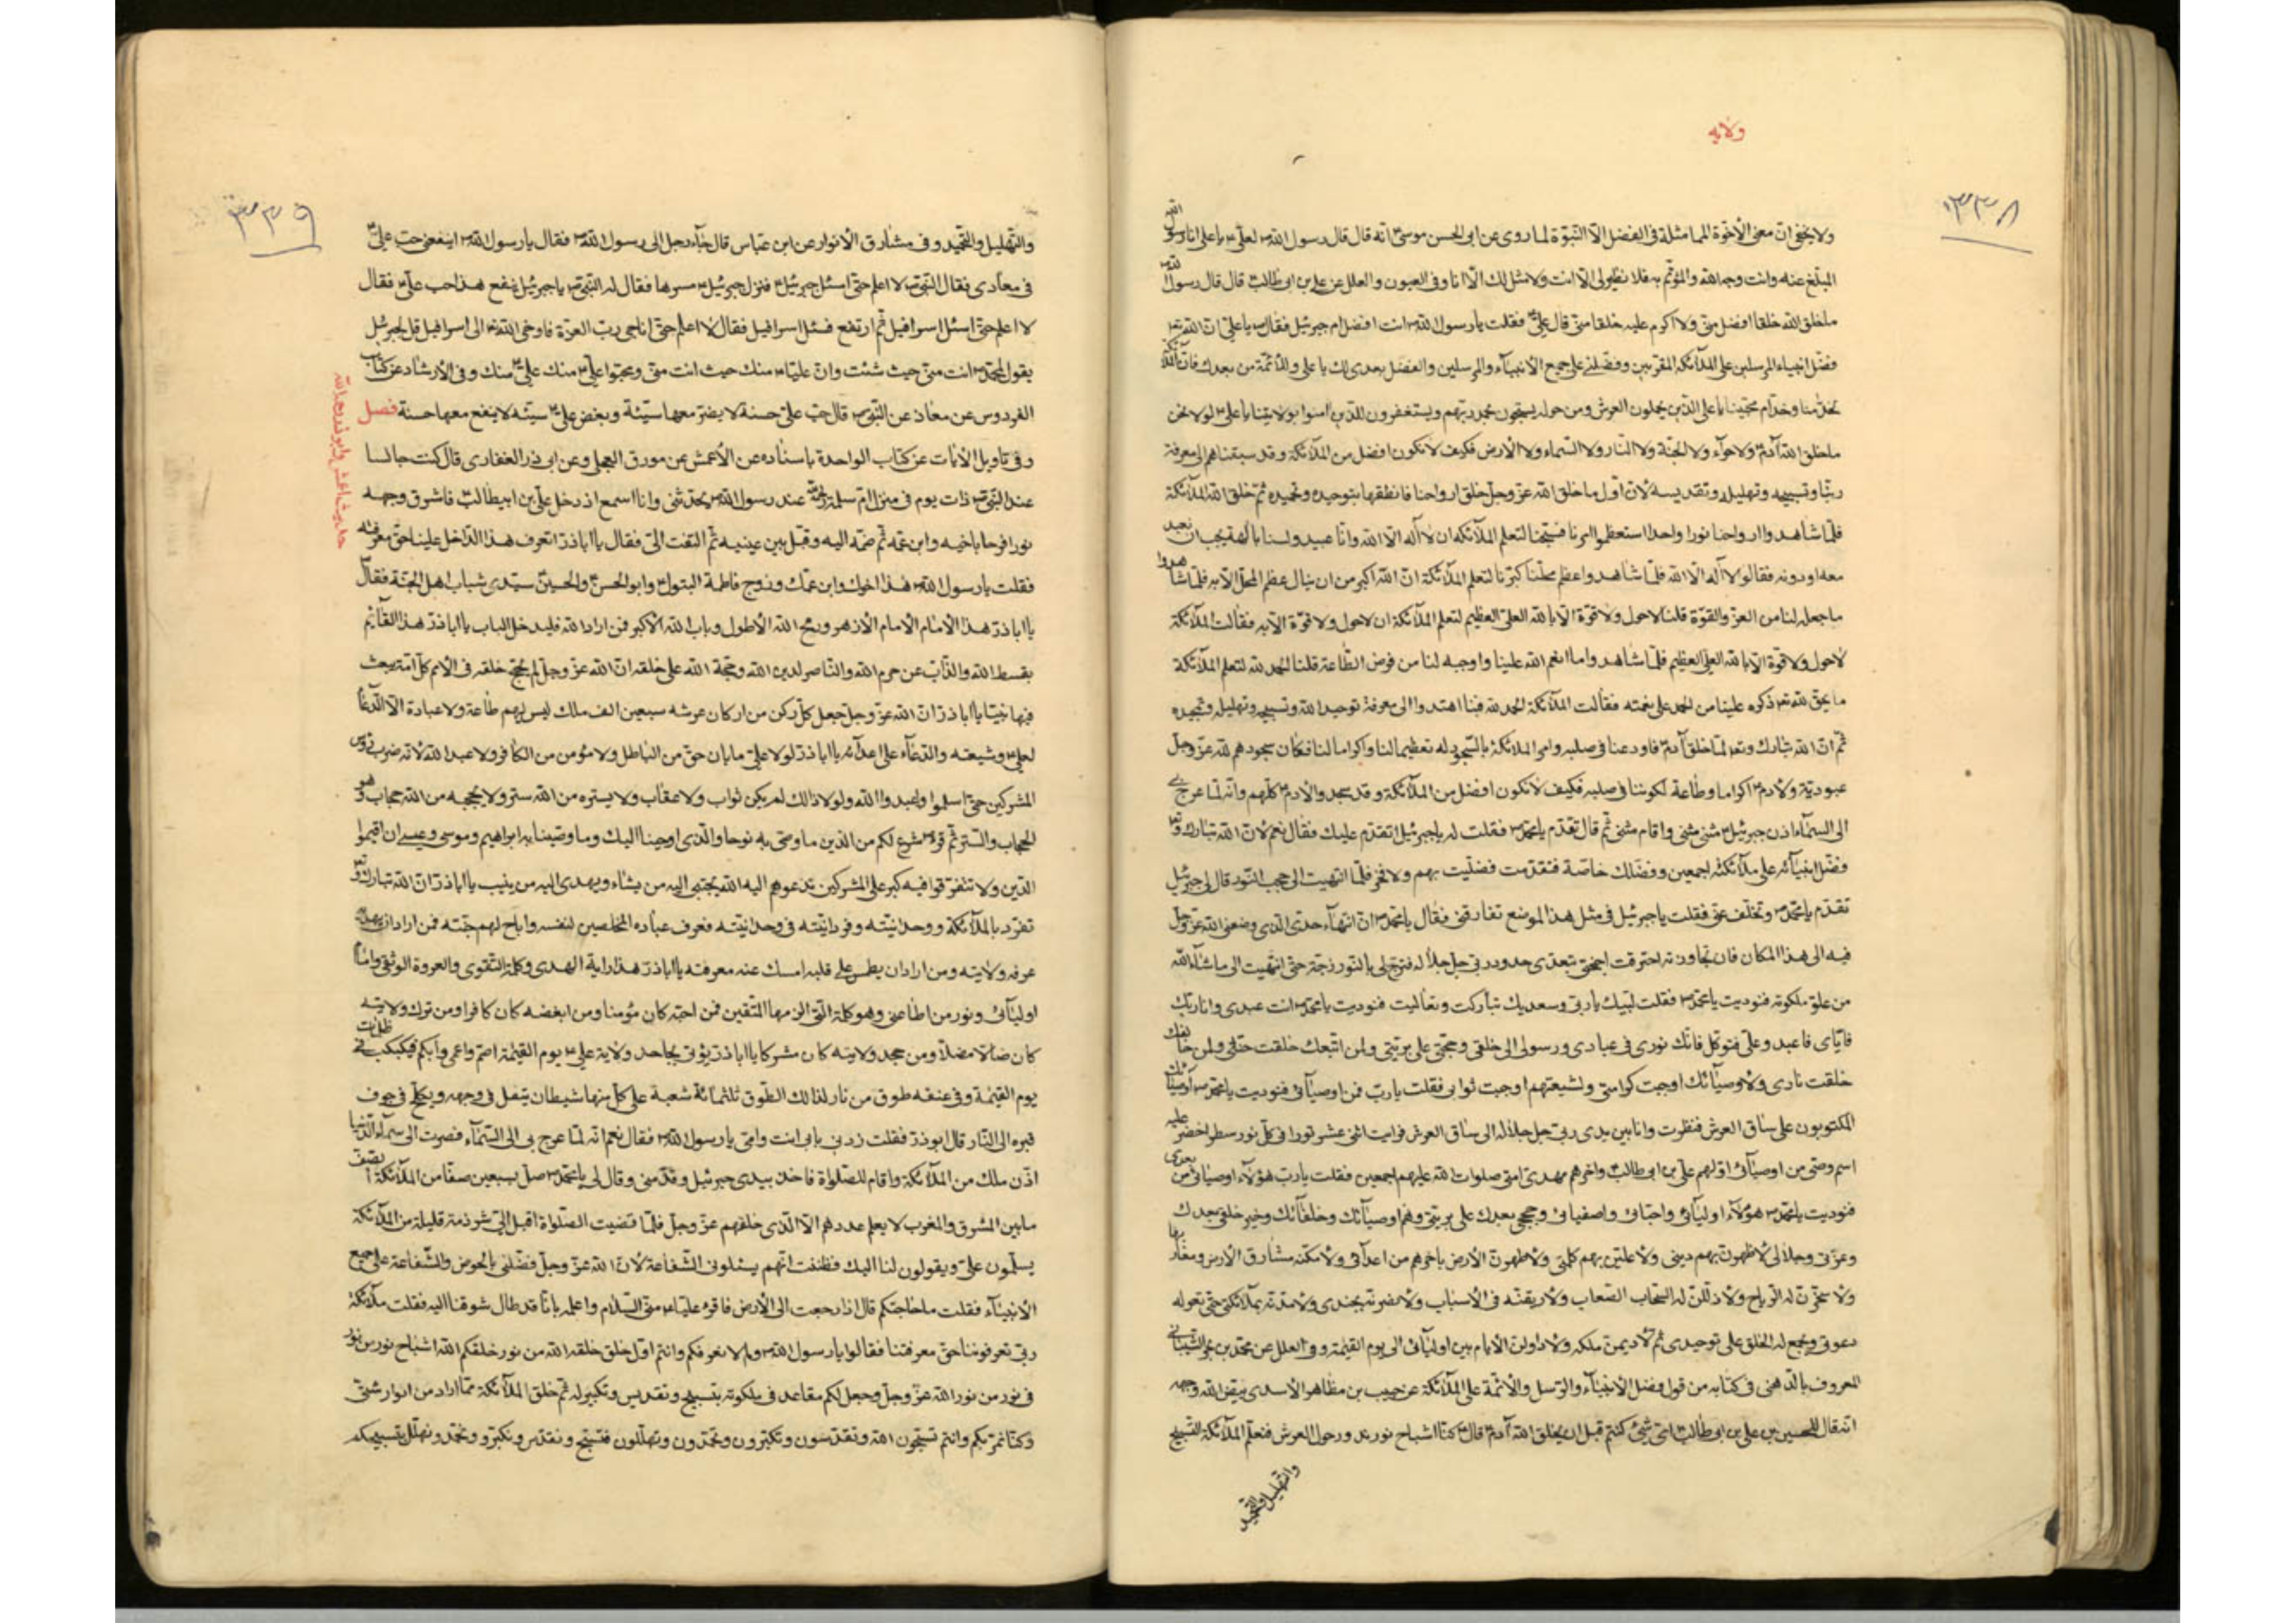 ولایه
٣٣٨
ولا يخفى ان معنى الاخوة المماثلة في الفضل الا النبوة لما روى عن ابى الحسن موسىؑ انه قال قال رسول اللهؐ لعلىؑ يا على انا رسول الله
المبلغ عنه وانت وجه الله والمؤتم به فلا نظير لى الا انت ولا مثل لك الا انا وفى العيون والعلل عن على بن ابى طالبؑ قال قال رسول اللهؐ
ما خلق الله خلقا افضل منى ولا اكرم عليه خلقا منى قال علىؑ فقلت يا رسول اللهؐ انت افضل ام جبرئيل فقالؐ يا على ان الله تع
فضل انبياءه المرسلين على الملائكة المقربين وفضلنى على جميع الانبياء والمرسلين والفضل بعدى لك يا على وللائمة من بعدك فان الملائكة
لخدامنا وخدام محبينا يا على الذين يحملون العرش ومن حوله يسبحون بحمد ربهم ويستغفرون للذين امنوا بولايتنا يا علىؑ لولا نحن
ما خلق الله آدمؑ ولا حواء ولا الجنة ولا النار ولا السماء ولا الارض فكيف لا نكون افضل من الملائكة وقد سبقناهم الى معرفة
ربنا وتسبيحه وتهليله وتقديسه لان اول ما خلق الله عز وجل خلق ارواحنا فانطقها بتوحيده وتحميده ثم خلق الله الملائكة
فلما شاهدوا ارواحنا نورا واحدا استعظموا امرنا فسبحنا لتعلم الملائكة ان لا اله الا الله وانا عبيد ولسنا بآلهة يجب ان نعبد
معه او دونه فقالوا لا اله الا الله فلما شاهدوا عظم محلنا كبرنا لتعلم الملائكة ان الله اكبر من ان ينال عظم المحل الا به فلما شاهدوا
ما جعله لنا من العز والقوة قلنا لا حول ولا قوة الا بالله العلى العظيم لتعلم الملائكة ان لا حول ولا قوة الا به فقالت الملائكة
لا حول ولا قوة الا بالله العلى العظيم فلما شاهدوا ما انعم الله علينا واوجبه لنا من فرض الطاعة قلنا الحمد لله لتعلم الملائكة
ما يحق لله تع ذكره علينا من الحمد على نعمته فقالت الملائكة الحمد لله فبنا اهتدوا الى معرفة توحيد الله وتسبيحه وتهليله وتمجيده
ثم ان الله تبارك وتع لما خلق آدمؑ فاودعنا فى صلبه وامر الملائكة بالسجود له تعظيما لنا واكراما لنا فكان سجودهم لله عز وجل
عبودية ولآدمؑ اكراما وطاعة لكوننا فى صلبه فكيف لا نكون افضل من الملائكة وقد سجدوا لادمؑ كلهم وانه لما عرج بى
الى السماء اذن جبرئيلؑ مثنى مثنى واقام مثنى ثم قال تقدم يا محمدؐ فقلت له يا جبرئيل اتقدم عليك فقال نعم لان الله تبارك وتع
فضل انبيائه على ملائكته اجمعين وفضلك خاصة فتقدمت فصليت بهم ولا فخر فلما انتهيت الى حجب النور قال لى جبرئيل
تقدم يا محمدؐ وتخلف عنى فقلت يا جبرئيل فى مثل هذا الموضع تفارقنى فقال يا محمدؐ ان انتهاء حدى الذى وضعنى الله عز وجل
فيه الى هذا المكان فان تجاوزته احترقت اجنحتى بتعدى حدود ربى جل جلاله فزج بى بالنور زجة حتى انتهيت الى ما شاء الله
من علو ملكوته فنوديت يا محمدؐ فقلت لبيك يا ربى وسعديك تباركت وتعاليت فنوديت يا محمدؐ انت عبدى وانا ربك
فاياى فاعبد وعلى فتوكل فانك نورى فى عبادى ورسولى الى خلقى وحجتى على بريتى ولمن اتبعك خلقت جنتى ولمن خالفك
خلقت نارى ولاوصيائك اوجبت كرامتى ولشيعتهم اوجبت ثوابى فقلت يا رب فمن اوصيائى فنوديت يا محمدؐ اوصيائك
المكتوبون على ساق العرش فنظرت وانا بين يدى ربى جل جلاله الى ساق العرش فرايت اثنى عشر نورا فى كل نور سطر اخضر عليه
اسم وصى من اوصيائى اولهم على بن ابى طالبؑ واخرهم مهدى امتى صلوات الله عليهم اجمعين فقلت يا رب هؤلاء اوصيائى من بعدى
فنوديت يا محمدؐ هؤلاء اوليائى واحبائى واصفيائى وحججى بعدك على بريتى وهم اوصيائك وخلفائك وخير خلقى بعدك
وعزتى وجلالى لاظهرن بهم دينى ولاعلين بهم كلمتى ولاطهرن الارض باخرهم من اعدائى ولامكنه مشارق الارض ومغاربها
ولاسخرن له الرياح ولاذللن له السحاب الصعاب ولارقينه فى الاسباب ولانصرنه بجندى ولامدنه بملائكتى حتى تعلو
دعوتى ويجمع له الخلق على توحيدى ثم لاديمن ملكه ولاداولن الايام بين اوليائى الى يوم القيمة وفى العلل عن محمد بن بحر الشيبانى
المعروف بالدهنى فى كتابه من قول فضل الانبياء والرسل والائمة على الملائكة عن حبيب بن مظاهر الاسدى بيض الله وجهه
انه قال للحسين بن على بن ابى طالبؑ اى شىء كنتم قبل ان يخلق الله آدمؑ قالؑ كنا اشباح نور ندور حول العرش فنعلم الملائكة التسبيح
والتهليل والتحميد
٣٣٩
والتهليل والتحميد وفى مشارق الانوار عن ابن عباس قال جاء رجل الى رسول اللهؐ فقال يا رسول اللهؐ اينفعنى حب علىؑ
فى معادى فقال النبىؐ لا اعلم حتى اسئل جبرئيلؑ فنزل جبرئيلؑ مسرها فقال له النبىؐ يا جبرئيل اينفع هذا حب علىؑ فقال
لا اعلم حتى اسئل اسرافيل ثم ارتفع فسئل اسرافيل فقال لا اعلم حتى اناجى رب العزة فاوحى الله تع الى اسرافيل قل لجبرئيل
يقول لمحمدؐ انت منى حيث شئت وان علياؑ منك حيث انت منى ومحبوا علىؑ منك علىؑ منك وفى الارشاد عن كتاب
الفردوس عن معاذ عن النبىؐ قال حب على حسنة لا يضر معها سيئة وبغض علىؑ سيئة لا ينفع معها حسنة فصل
وفى تاويل الآيات عن كتاب الواحدة باسناده عن الاعمش عن مورق العجلى وعن ابى ذر الغفارى قال كنت جالسا
عند النبىؐ ذات يوم فى منزل ام سلمة عند رسول اللهؐ يحدثنى وانا اسمع اذ دخل على بن ابيطالبؑ فاشرق وجهه
نورا فرحا باخيه وابن عمه ثم ضمه اليه وقبل بين عينيه ثم التفت الى فقال يا اباذر اتعرف هذا الداخل علينا حق معرفته
فقلت يا رسول اللهؐ هذا اخوك وابن عمك وزوج فاطمة البتول وابو الحسن والحسين سيدى شباب اهل الجنة فقالؐ
يا اباذر هذا الامام الازهر ورمح الله الاطول وباب الله الاكبر فمن اراد الله فليدخل الباب يا اباذر هذا القائم
بقسط الله والذاب عن حرم الله والناصر لدين الله وحجة الله على خلقه ان الله عز وجل لم يحتج خلقه فى الامم كل امة يبعث
فيها نبيا يا اباذر ان الله عز وجل جعل كل ركن من اركان عرشه سبعين الف ملك ليس لهم طاعة ولا عبادة الا الدعاء
لعلىؑ وشيعته والدعاء على اعدائه يا اباذر لولا على ما بان حق من الباطل ولا مؤمن من الكافر ولا عبد الله لانه ضرب رؤس
المشركين حتى اسلموا وعبدوا الله ولولا ذالك لم يكن ثواب ولا عقاب ولا يستره من الله ستر ولا يحجبه من الله حجاب وهو
الحجاب والستر ثم قرءؐ شرع لكم من الدين ما وصى به نوحا والذى اوحينا اليك وما وصينا به ابراهيم وموسى وعيسى ان اقيموا
الدين ولا تتفرقوا فيه كبر على المشركين تدعوهم اليه الله يجتبى اليه من يشاء ويهدى اليه من ينيب يا اباذر ان الله تبارك وتع
تفرد بالملائكة ووحدانيته وفردانيته فى وحدانيته فعرف عباده المخلصين لنفسه واباح لهم جنته فمن اراد ان يهديه
عرفه ولايته ومن اراد ان يطمس على قلبه امسك عنه معرفته يا اباذر هذا راية الهدى وكلمة التقوى والعروة الوثقى وامام
اوليائى ونور من اطاعنى وهو كلمة التى الزمها المتقين فمن احبه كان مؤمنا ومن ابغضه كان كافرا ومن ترك ولايته
كان ضالا مضلا ومن جحد ولايته كان مشركا يا اباذر يؤتى بجاحد ولاية علىؑ يوم القيمة اصم واعمى وابكم فيكبكب فى ظلمات
يوم القيمة وفى عنقه طوق من نار لذالك الطوق ثلثمائة شعبة على كل منها شيطان يتفل فى وجهه ويكلح فى جوف
قبره الى النار قال ابوذر فقلت زدنى بابى انت وامى يا رسول اللهؐ فقال نعم انه لما عرج بى الى السماء فصرت الى سماء الدنيا
اذن ملك من الملائكة واقام للصلواة فاخذ بيدى جبرئيل وقدمنى وقال لى يا محمدؐ صل بسبعين صفا من الملائكة
ما بين المشرق والمغرب لا يعلم عددهم الا الذى خلقهم عز وجل فلما قضيت الصلواة اقبل الى شرذمة قليلة من الملائكة
يسلمون على ويقولون لنا اليك فظننت انهم يسئلونى الشفاعة لان الله عز وجل فضلنى بالحوض والشفاعة على جميع
الانبياء فقلت ما حاجتكم قال اذا رجعت الى الارض فاقرء علياؑ منى السلام واعلمه بانا قد طال شوقنا اليه فقلت ملائكة
ربى تعرفوننا حق معرفتنا فقالوا يا رسول اللهؐ ولم لا نعرفكم وانتم اول خلق خلقه الله من نور خلقكم الله اشباح نور من نور
فى نور من نور الله عز وجل وجعل لكم مقاعد فى ملكوته بتسبيح وتقديس وتكبير له ثم خلق الملائكة مما اراد من انوار شتى
وكنا نمر بكم وانتم تسبحون الله وتقدسون وتكبرون وتحمدون وتهللون فنسبح ونقدس ونكبر ونحمد ونهلل بتسبيحكم
حديث اعمش وابوذر رحمه الله